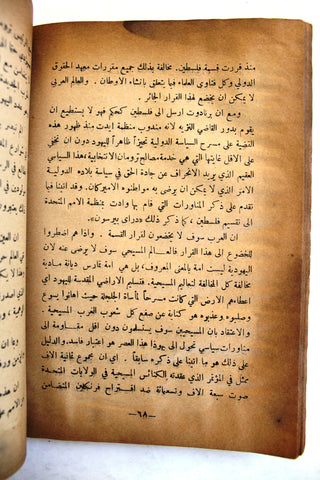 منذ قررت قسمة فلسطين. مخالفة بذلك جميع مقررات معهد الحقوق
الدولي وكل فتاوى العلماء فيما يتعلق بانشاء الاوطان . والعالم العربي
لا يمكن ان يخضع لهذا القرار الجائر .
وان برنادوت ارسل الى فلسطين كحكم فهو لا يستطيع ان
يقوم بدور القاضي النزيه لانه مندوب منظمة ابدت منذ ظهور هذه
القضية على مسرح السياسة الدولية تحيزاً ظاهراً لليهود دون ان تخفي
على الاقل غايتها التي هي خدمة مصالح ترومان الانتخابية بهذا السياسي
العقيم الذي يريد الانحراف عن جادة الحق في سياسة بلاده الدولية
الامر الذي لا يمكن ان يرضى به مواطنوه الاميركان. وقد اتينا فيما
تقدم على ذكر المناورات التي قام بها لحمل هيئة الامم
الى تقسيم فلسطين، كما ذكر ذلك «دراى بيرسون».
ان العرب سوف لا يخضعون لقرار القسمة . واذا هم اضطروا
للخضوع الى هذا القرار فالعالم المسيحي سوف لا يرضى عنه لان
اليهودية ليست امة بالمعنى المعروف، بل هي امة تمارس ديانة مادية
مخالفة كل المخالفة لتعاليم المسيحية. فتسليم الاراضي المقدسة لليهود اي
اعطاءهم الارض التي كانت مسرحاً لمأساة الجلجلة حيث اهانوا يسوع
وصلبوه وعذبوه هو كناية عن صفع كل شعوب الغرب المسيحية .
والاعتقاد بان المسيحيين سوف يستسلمون دون اقل مقاومة الى
مناورات سياسي تحول الى يد هذا العصر هو اعتبار فاسد والدليل
على ذلك هو ما اتينا على ذكره سابقاً . اي ان مجموع ثمانية الاف
ممثل في المؤتمر الذي عقدته الكنائس المسيحية في الولايات المتحدة
صوت سبعة الاف وتسعماية ضد اقتراح فرنكلين المتضامن
— ٦٨ —